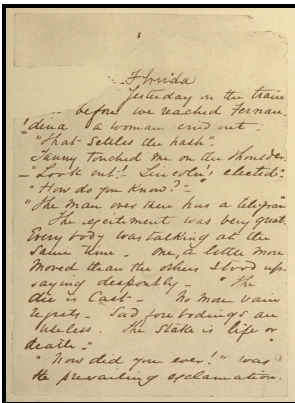 Florida
Yesterday on the train
before we reached Fernan
dina a woman cried out -
"That settles the hash".
Tanny touched me on the shoulder
- "Look out! - Lincoln's elected".
"How do you know?" -
"The man over there has a telegram"
The excitement was very great.
Every body was talking at the
same time - One, a little more
moved than the others stood up -
saying despondly - "The
die is cast - No more vain
regrets - Sad forebodings are
useless. The stake is life or
death -"
"Now did you ever!" was
the prevailing exclamation.